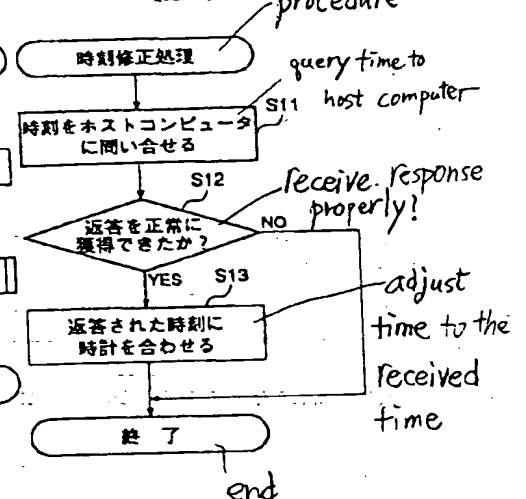 procedure
時刻修正処理
query time to
host computer
S11
時刻をホストコンピュータ
に問い合せる
S12
receive response
properly?
返答を正常に
獲得できたか?
NO
YES
S13
adjust
time to the
received
time
返答された時刻に
時計を合わせる
終 了
end